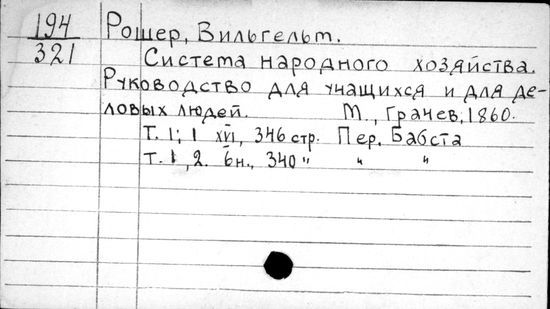 194 Рошер, Вильгельм.
321 Система народного хозяйства.
Руководство для учащихся и для де-
ловых людей. М., Грачев, 1860.
Т. 1; 1 XVI, 346 стр. Пер. Бабста
Т. 1, 2. 6н., 340 " " "